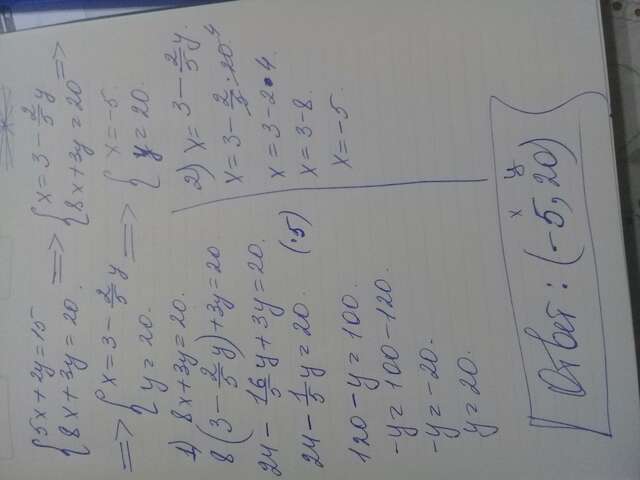 {5x+2y=15 => {x=3-2/5y
{8x+3y=20. {8x+3y=20 =>
=> {x=3-2/5y => {x=-5.
{y=20. {y=20.
1) 8x+3y=20.
8(3-2/5y)+3y=20
24-16/5y+3y=20.
24-1/5y=20. (·5)
120-y=100.
-y=100-120.
-y=-20.
y=20.
2) x=3-2/5y.
x=3-2/5·20⁴
x=3-2·4.
x=3-8.
x=-5.
x y
Ответ: (-5, 20)